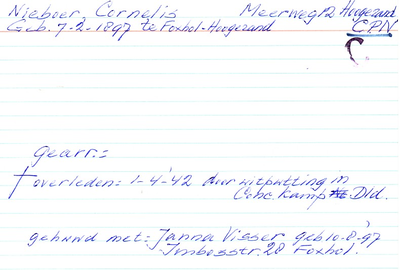 Nieboer, Cornelis Meerweg 12 Hoogezand
Geb. 7-2-1897 te Foxhol-Hoogezand CPN
C.
gearr.:
† overleden: 1-4-'42 door uitputting in
Conc. Kamp Dld.
gehuwd met: Janna Visser geb 10-8-'97
Imbosstr. 28 Foxhol.